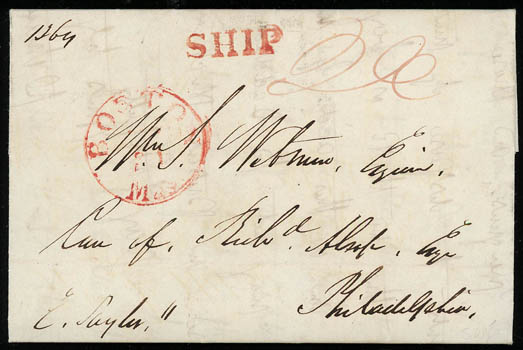 1364
SHIP
BOSTON
MAS
Wm S. Wetmore, Esquire.
Care of, Richd. Alsop, Esqr
Philadelphia,